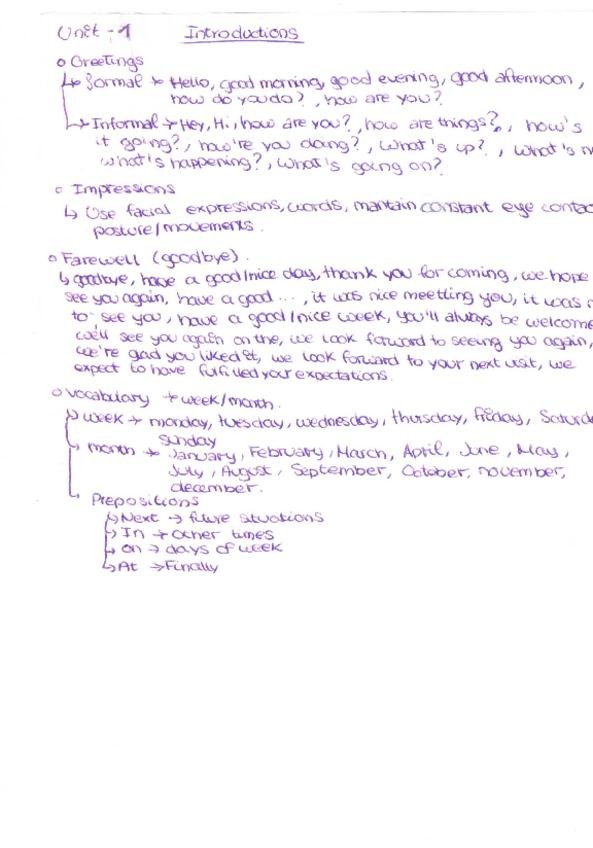 Unit -1 Introductions
o Greetings
↳ formal → Hello, good morning, good evening, good afternoon,
how do you do?, how are you?
↳ Informal → Hey, Hi, how are you?, how are things?, how's
it going?, how're you doing?, what's up?, what's
what's happening?, what's going on?
o Impressions
↳ Use facial expressions, words, mantain constant eye contac
posture/movements.
o Farewell (goodbye).
↳ goodbye, have a good/nice day, thank you for coming, we hope
see you again, have a good ..., it was nice meetting you, it was
to see you, have a good/nice week, you'll always be welcome
we'll see you again on the, we look forward to seeing you again,
we're glad you liked it, we look forward to your next visit, we
expect to have fulfilled your expectations.
o Vocabulary → week/month.
↳ week → monday, tuesday, wednesday, thursday, friday, Saturd
Sunday
↳ month → January, February, March, April, June, May,
July, August, September, October, november,
december.
↳ Prepositions
↳ Next → future situations
↳ In → other times
↳ on → days of week
↳ At → Finally